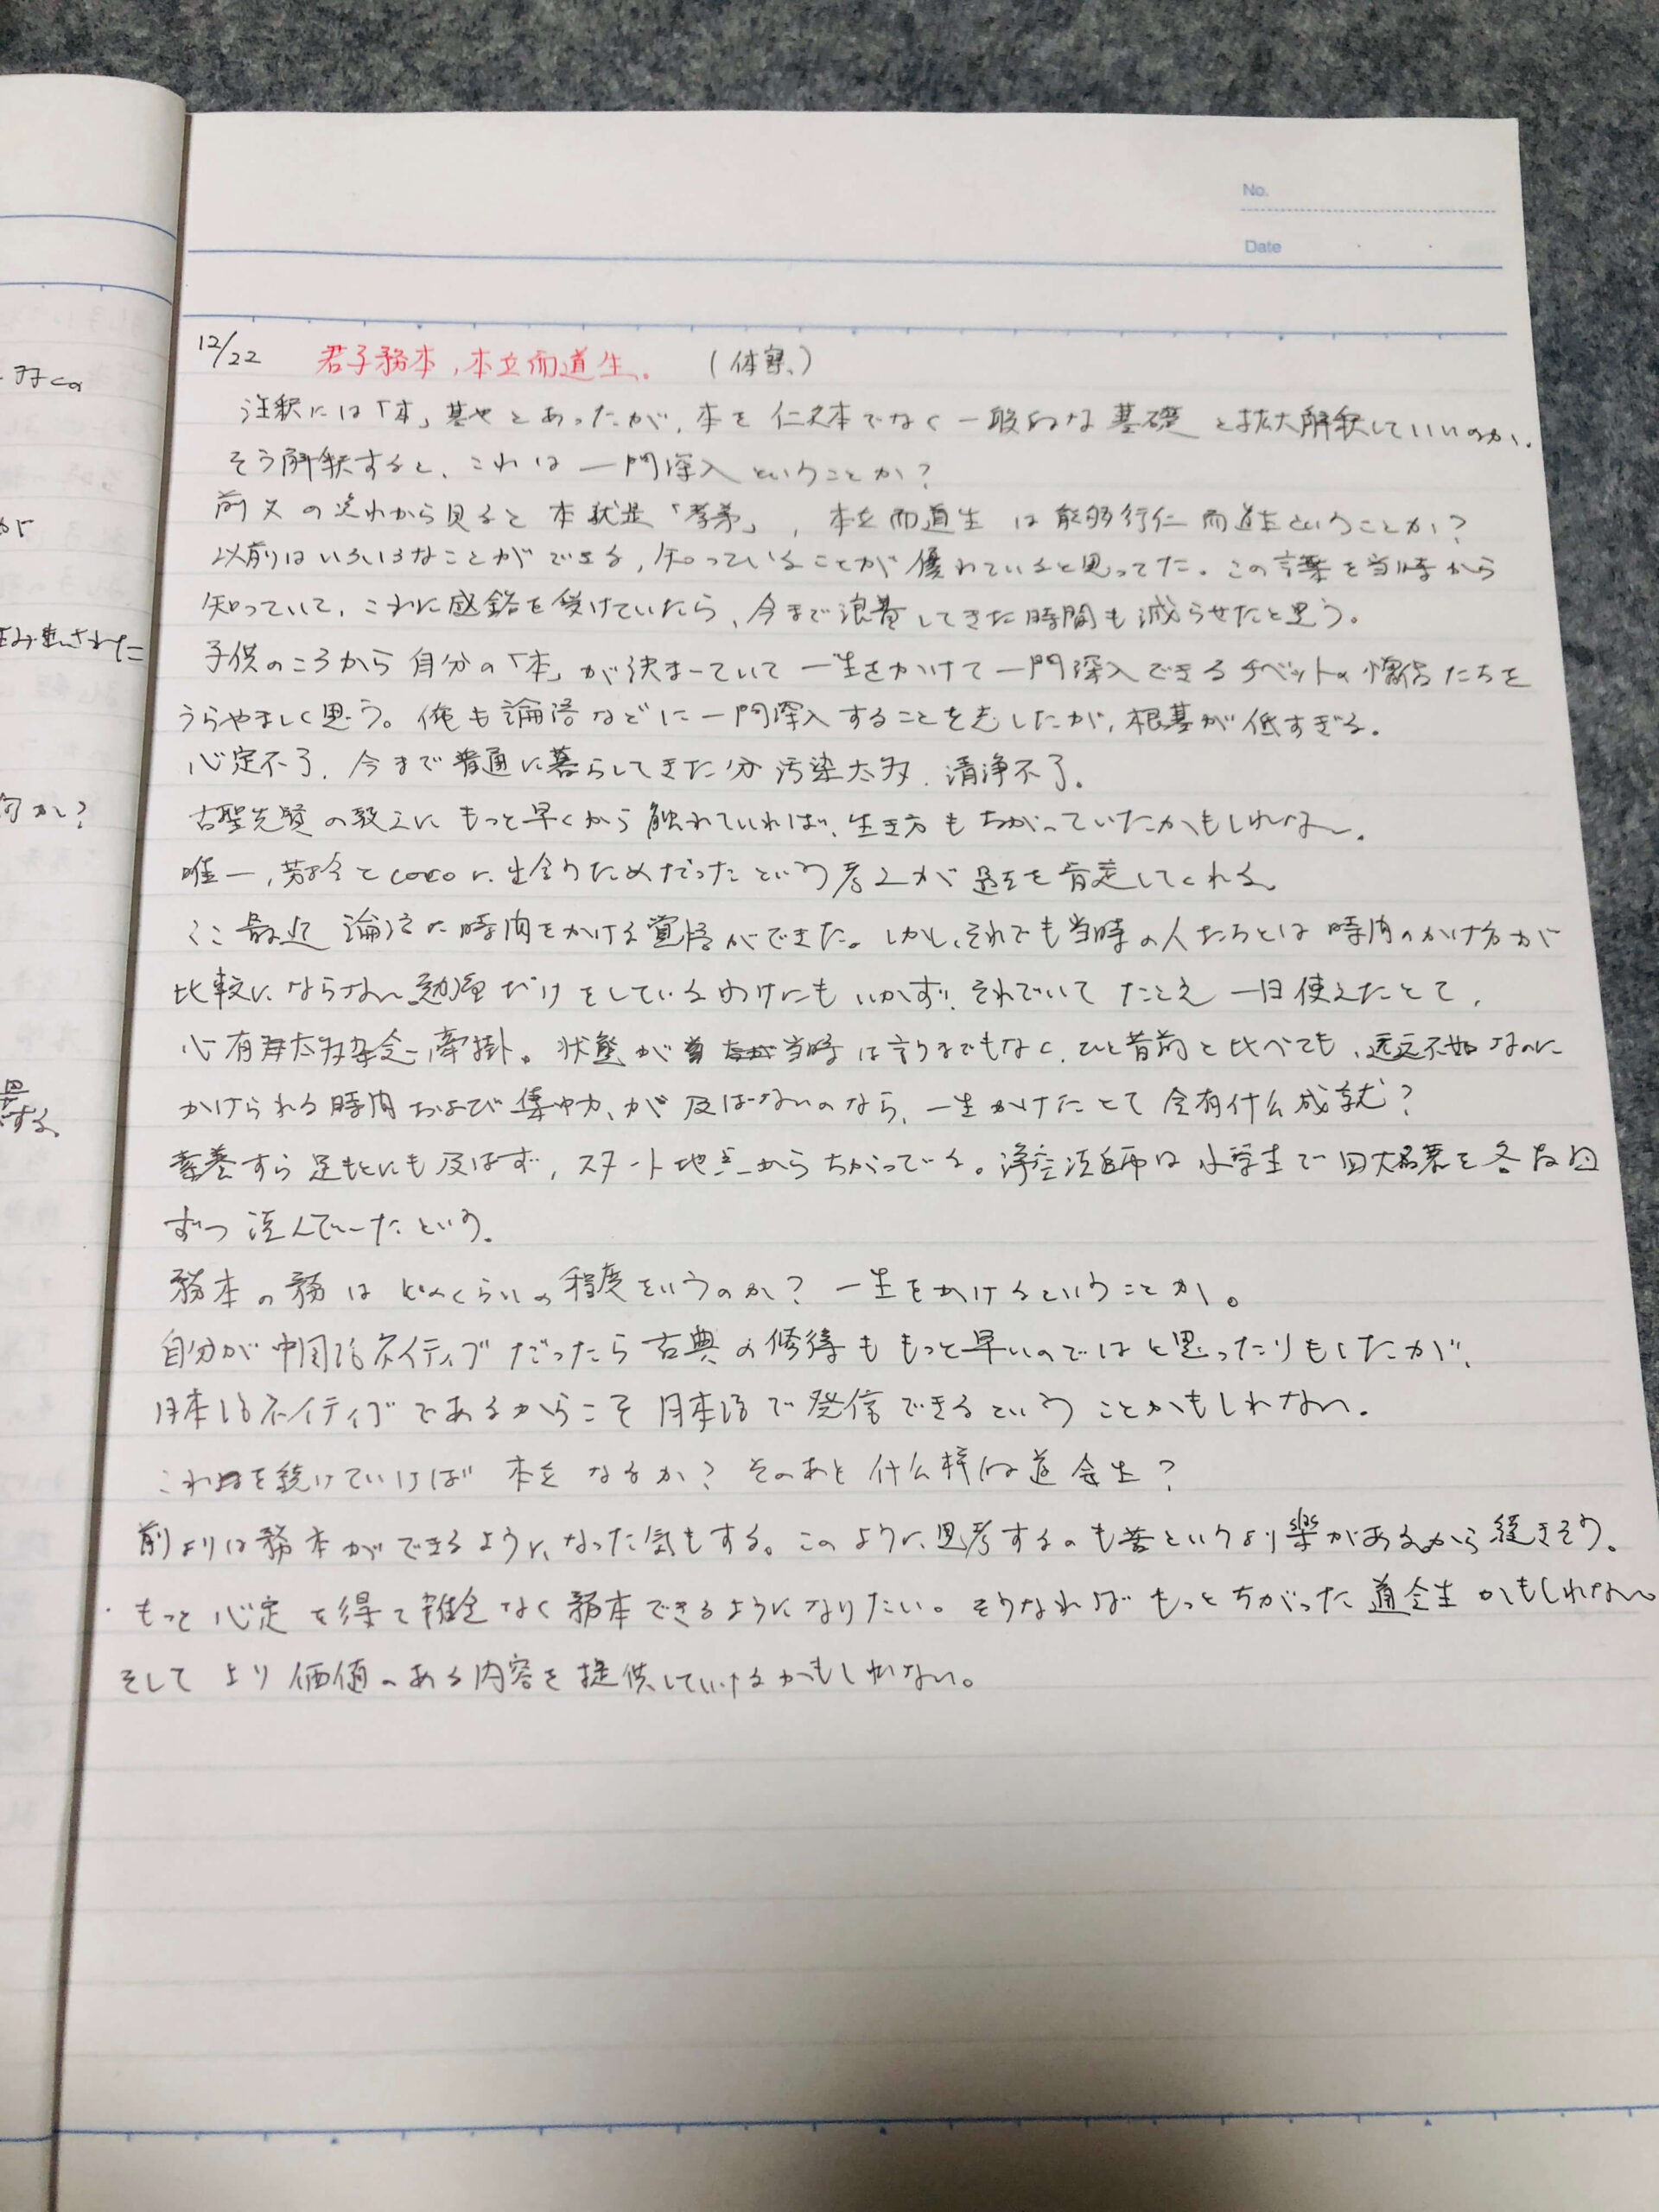 No.
Date
12/22 君子務本,本立而道生。 (体察)
注釈には「本」基也とあったが、本を仁之本でなく一般的な基礎と拡大解釈していいのか。
そう解釈すると、これは一門深入ということか?
前文の流れから見ると本就是「孝弟」, 本立而道生は能够行仁而道生ということか?
以前はいろいろなことができる,知っていることが優れていると思ってた。この言葉を当時から
知っていて、これに感銘を受けていたら、今まで浪費してきた時間も減らせたと思う。
子供のころから自分の「本」が決まっていて一生をかけて一門深入できるチベットの僧侶たちを
うらやましく思う。俺も論語などに一門深入することを志したが、根基が低すぎる。
心定不了、今まで普通に暮らしてきた分汚染太多、清浄不了。
古聖先賢の教えにもっと早くから触れていれば、生き方もちがっていたかもしれない。
唯一, とcocoに出会うためだったという考えが過去を肯定してくれる。
ここ最近論語に時間をかける覚悟ができた。しかし、それでも当時の人たちとは時間のかけ方が
比較にならない。勉強だけをしているわけにもいかず、それでいてたとえ一日使えたとて、
心有太多杂念、牽掛。状態が当時は言うまでもなく、ひと昔前と比べても、远远不如なのに
かけられる時間および集中力、が及ばないのなら、一生かけたとて会有什么成就?
素養すら足もとにも及ばず、スタート地点からちがっている。浄空法師は小学生で四大名著を各五回
ずつ読んでいたという。
務本の務はどのくらいの程度をいうのか? 一生をかけるということか。
自分が中国語ネイティブだったら古典の修得ももっと早いのではと思ったりもしたが、
日本語ネイティブであるからこそ日本語で発信できるということかもしれない。
これを続けていけば本立なるか? そのあと什么样的道会生?
前よりは務本ができるようになった気もする。このように思考するのも苦というより楽があるから続きそう。
もっと心定を得て雑念なく務本できるようになりたい。そうなればもっとちがった道会生かもしれない。
そしてより価値のある内容を提供していけるかもしれない。